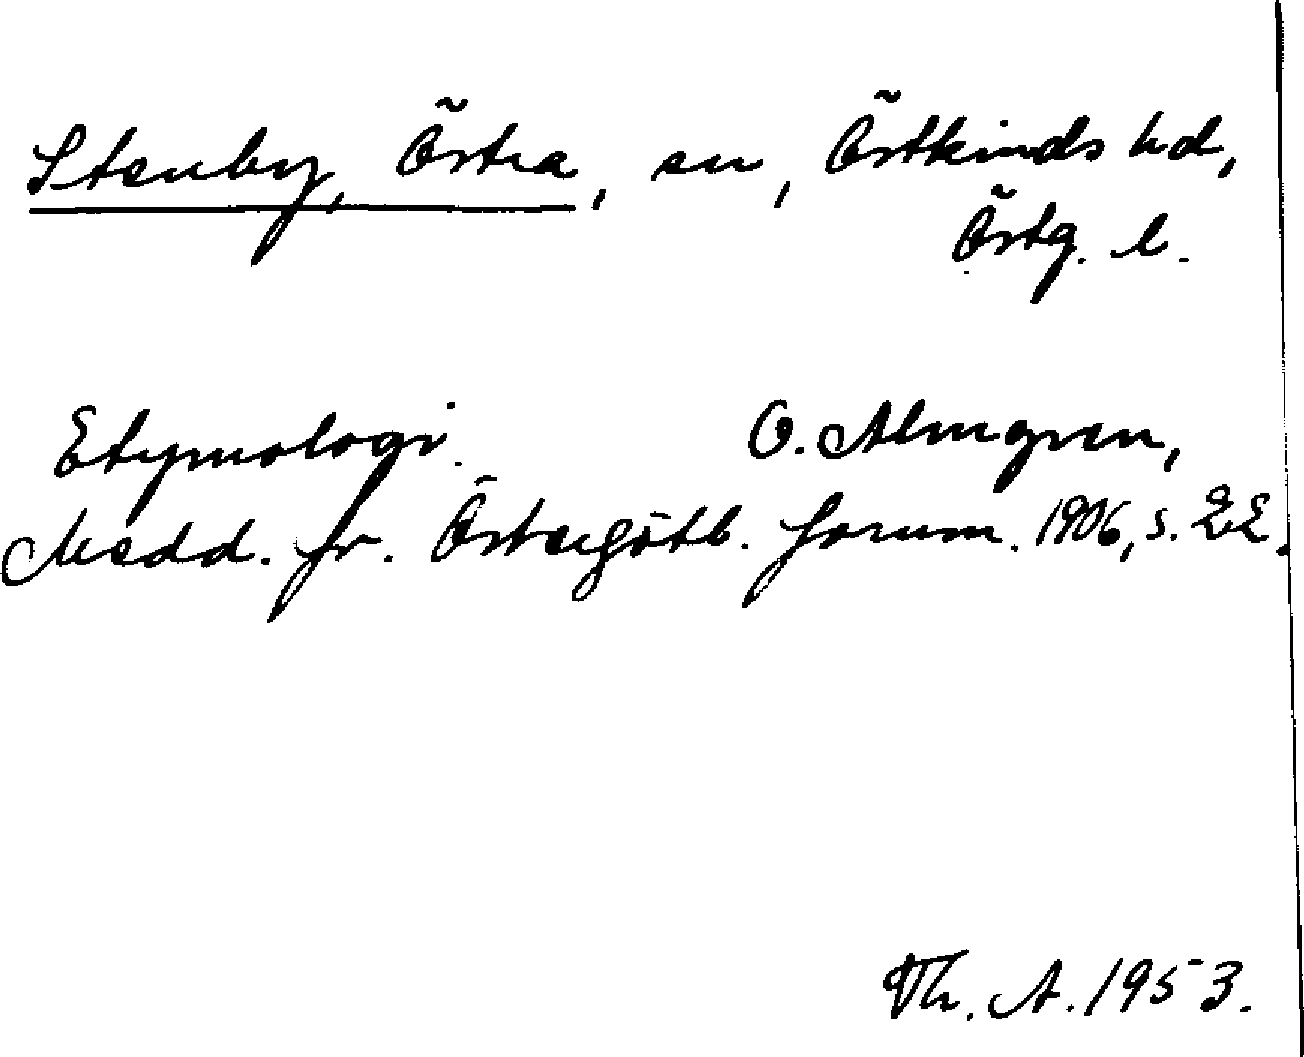 Stenby, Östra, sn, Östkinds hd,
Östg. l.
Etymologi. O. Almgren,
Medd. fr. Östergötl. fornm. 1906, s. 22.
Th. A. 1953.